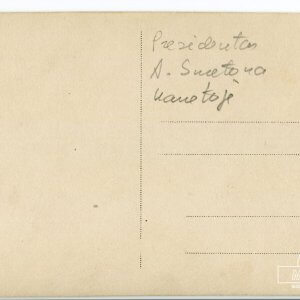 Prezidentas
A. Smetona
karietoje